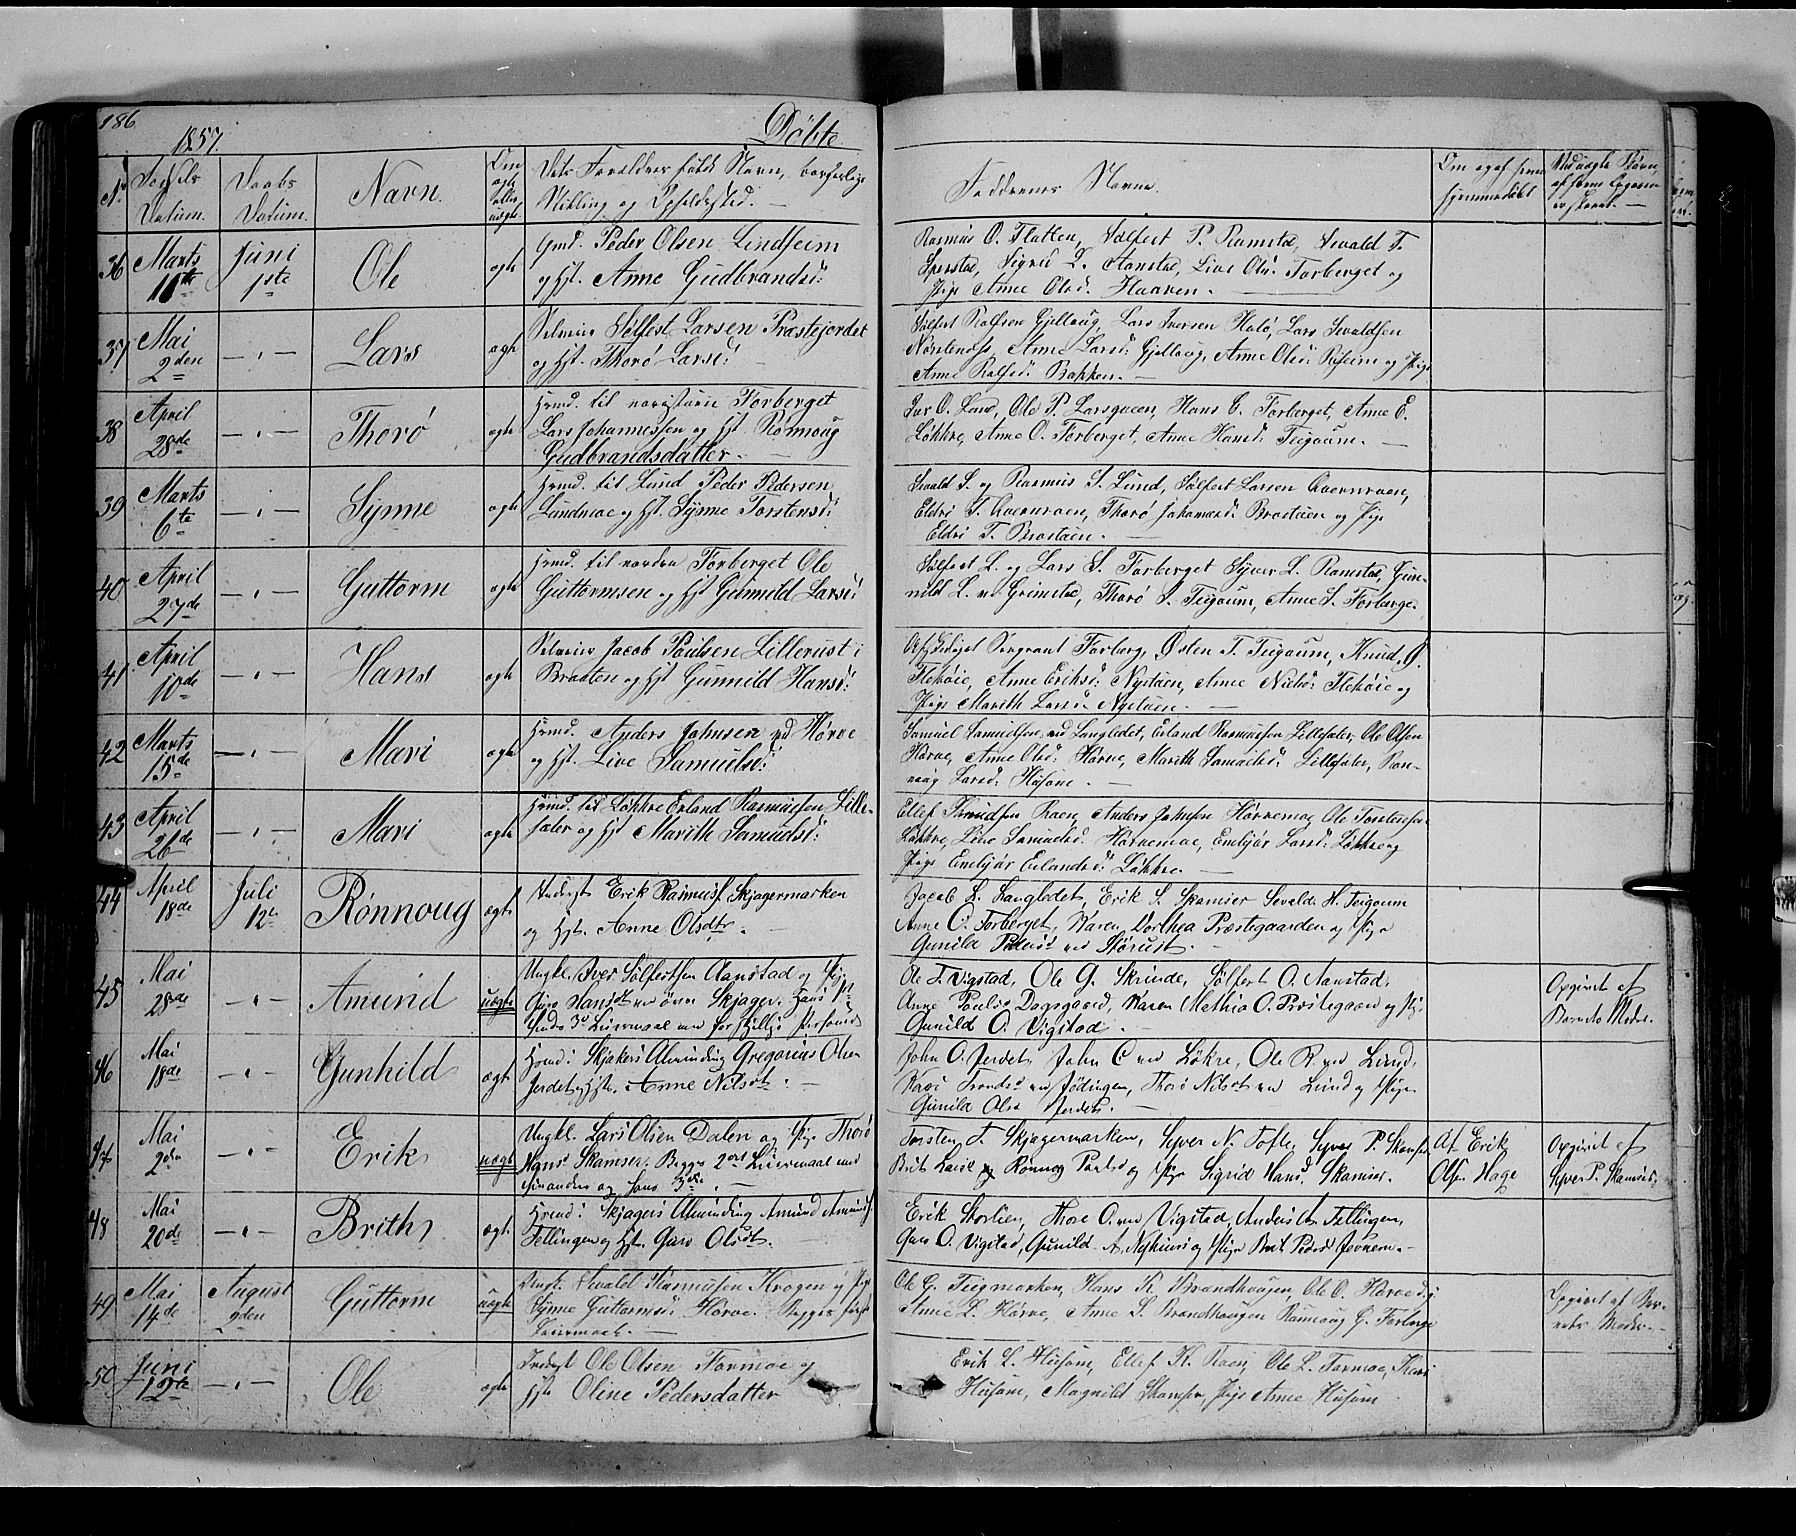 186
1857. Döbte
No Fødsels Datum. Daabs Datum. Navn. Om ægte eller uægte Dets Forældres fulde Navn, borgerlige Stilling og Opholdssted. — Faddernes Navne. Om Børn,
36 Marts 11te Juni 1ste Ole ægte Gmd. Peder Olsen Lindheim
og Hst. Anne Gudbrandsd:
Rasmus O. Flatten, Sølfest P. Ramstad, Sevald T.
Sperstad, Sigrid L. Aanstad, Live Olsd: Forberget og
Pige Anne Olsd. Haaven. —
37 Mai 2den — " — Lars ægte Selveier Sølfest Larsen Præstejordet
og Hst. Thorö Larsd:
Sølfest Rolfsen Gjelloug, Lars Iversen Kolö, Lars Sevaldsen
Anne Larsd: Gjelloug, Anne Olsd: og Pige
Anne Rolfsd: Bakken. —
38 April 28de — " — Thorö ægte Huusmd. til Forberget
Lars Johannessen og Hst. Rönnoug
Gudbrandsdatter. —
Ivar O. Lund, Ole P. Hans E. Forberget, Anne E.
Løkkre, Anne O. Forberget, Anne Hansd: Teigoum. —
39 Marts 6te — " — Synne ægte Huusmd. til Lund Peder Pedersen
Lundmoe og Hst. Synne Torstensd:
Sevald S. og Rasmus S. Lund, Sølfest Larsen Qvernroen,
Eldri T. Qvernroen, Thorö Johannesd: Brostuen og Pige
Eldri T. Brostuen. —
40 April 27de — " — Guttorm ægte Huusmd. til nordre Forberget Ole
Guttormsen og Hst. Gunnild Larsd:
Sølfest L. og Lars S. Forberget Syver L. Ramstad, Gun-
nild L. ved Grimstad, Thorö S. Teigoum, Anne S. Forberge.
41 April 10de — " — Hans ægte Selveier Jacob Poulsen Lillerust i
Braaten og Hst. Gunnild Hansd:
Afskediget Sergeant Forberg, Östen T. Teigoum, Knud O.
Flekøie, Anne Eriksd: Nystuen, Anne Nielsd: Flekøie og
Pige Marith Larsd: Nystuen. —
42 Marts 15de — " — Mari ægte Huusmd. Anders Johnsen ved Hörve
og Hst. Live Samuelsd:
Samuel Samuelsen ved Langledet, Erland Rasmussen Lillesæter, Ole Olsen
Hörve, Anne Olsd: Hörve, Marith Samuelsd: Lillesæter, Røn-
noug Larsd: Husom. —
43 April 26de — " — Mari ægte Huusmd. til Løkkre Erland Rasmussen Lille-
sæter og Hst. Marith Samuelsd:
Ellef Knudsen Roen, Anders Johnsen Hörvemoe, Ole Torstensen
Løkkre, Live Samuelsd: Hörvemoe, Embjør Larsd: Løkkre og
Pige Embjør Erlandsd: Løkkre. —
44 April 18de Juli 12te Rönnoug ægte Inderst Erik Rasmusf. Skjagermarken
og Hst. Anne Olsdtr. —
Jacob L. Langledet, Erik S. Skamser Sevald H. Teigoum
Anne O. Forberget, Karen Dorthea Præstegaarden og Pige
Gunild Pedersd: ved Størust. —
45 Mai 28de — " — Amund uægte Ungkl. Iver Sølfestsen Aanstad og Pige
Guro Hansd: ved øvre Skjager. Hans 1ste
Hendes 3de Leiermaal med forskjellige Personer
Ole T. Vigstad, Ole G. Skrinde, Sølfest O. Aanstad.
Anne Paulsd: Dagsgaard, Karen Mathia O. Præstegaard og Pige
Gunild O. Vigstad. —
Opgivet af
Barnets Moder.
46 Mai 18de — " — Gunhild ægte Huusmd: Skjakers Alminding Gregorius Olsen
Jerdet og Hst. Anne Nelsdt: —
John O. Jerdet, John C. ved Løkre, Ole R. ved Lund,
Kari Trondsd: ved Jødingen, Thorø Nelsdt: ved Lund og Pige
Gunild Olsd: Jerdet. —
47 Mai 2den — " — Erik uægte Ungkl. Lars Olsen Dalen og Pige Thorö
Hansd: Skamser. Begges 2det Leiermaal med
hinanden og hans 3die. —
Torsten J. Skjagermarken, Syver N. Tofte, Syver P. Skamser
Brit Larsd: og Rønnog Paulsd: og Pige Sigrid Hansd: Skamser.
Af Erik
Olsen Hage
Opgivet af
Syver P. Skamser.
48 Mai 20de — " — Brith ægte Huusmd: Skjagers Alminding Amund Amundsf.
Fellingen og Hst. Guro Olsdt. —
Erik Storlien, Thore O. ved Vigstad, Anders A. Fellingen,
Guro O. Vigstad, Gunild A. og Pige Brit Pedersd: Jevnem. —
49 Mai 14de August 9den Guttorm uægte Ungk: Sevald Rasmussen Krogen og Pige
Synne Guttormsd: Hörve. Begges første
Leiermaal. —
Ole G. Teigmarken, Hans K. Brandhougen, Ole O. Hörve og
Anne L. Hörve, Anne S. Brandhougen Rønnoug G. Forberge
Opgivet af Bar-
nets Moder. —
50 Juni 12te — " — Ole ægte Inderst Ole Olsen Formoe og
Hst. Oline Pedersdatter
Erik L. Husom, Ellef K. Roen, Ole L. Formoe, Kari
Husom, Magnild Skamser, Pige Anne Husom